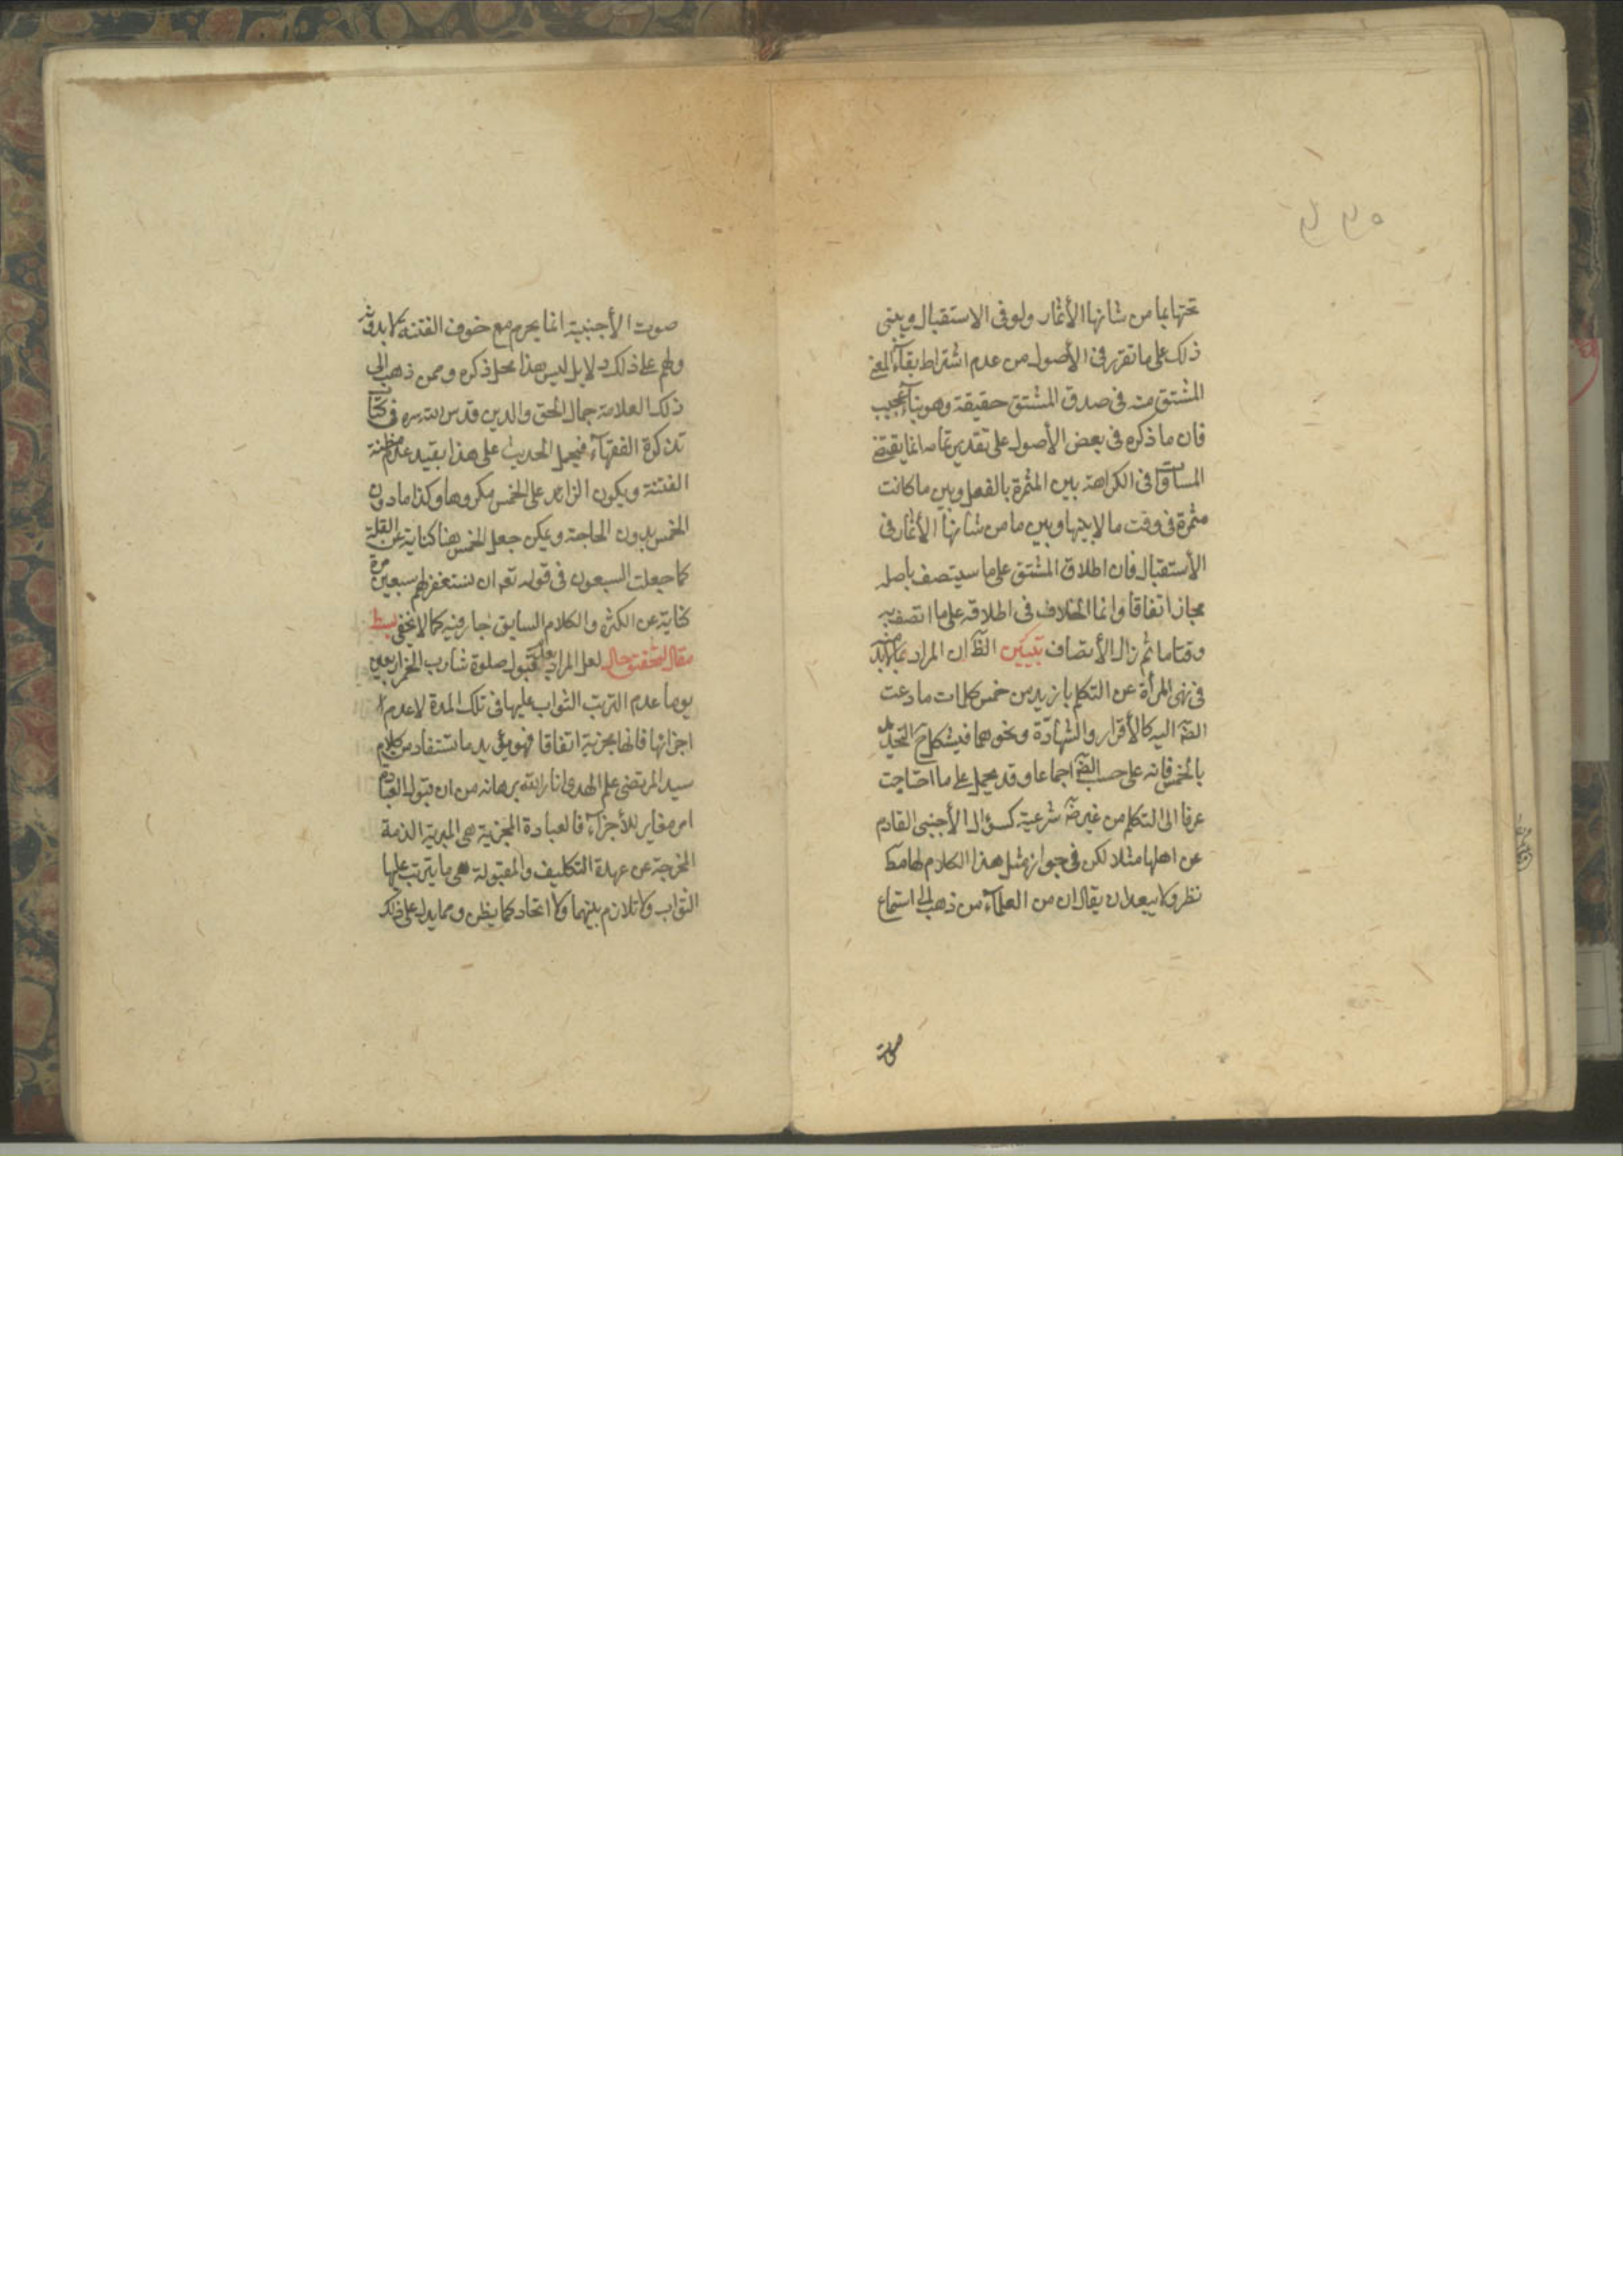 تحتها بما من شانها الأثمار ولو فى الاستقبال ويبنى
ذلك على ما تقرر فى الأصول من عدم اشتراط بقآء المعنى
المشتق منه فى صدق المشتق حقيقة وهو بنآء عجيب
فان ما ذكره فى بعض الأصول على تقدير تمامه انما يقتضى
المساواة فى الكراهة بين المثمرة بالفعل وبين ما كانت
مثمرة فى وقت ما لا بينها وبين ما من شانها الأثمار فى
الأستقبال فان اطلاق المشتق على ما سيتصف باصله
مجاز اتفاقا وانما الخلاف فى اطلاقه على ما اتصف به
وقتا ما ثم زال الأتصاف تبيين الظ ان المراد بما لا بد منه
فى نهى المرأة عن التكلم بازيد من خمس كلمات ما دعت
الضة اليه كالأقرار والشهادة ونحوهما فيشكل ح التحديد
بالخمس فانه على حسب الضة اجماعا وقد يحمل على ما احتاجت
عرفا الى التكلم من غير ضة شرعية كسؤال الأجنبى القادم
عن اهلها مثلا لكن فى جواز مثل هذا الكلام لها مط
نظر ولا يبعد ان يقال ان من العلمآء من ذهب الى استماع
صوت
صوت الأجنبية انما يحرم مع خوف الفتنة لا بدونه
ولهم على ذلك دلايل ليس هذا محل ذكره وممن ذهب الى
ذلك العلامة جمال الحق والدين قدس الله سره فى كتاب
تذكرة الفقهآء فيحمل الحديث على هذا بقيد عدم مظنة
الفتنة ويكون الزائد على الخمس مكروها وكذا ما دون
الخمس بدون الحاجة ويمكن جعل الخمس هنا كناية عن القلة
كما جعلت السبعون فى قوله تعه ان تستغفر لهم سبعين مرة
كناية عن الكثرة والكلام السابق جار فيه كما لا يخفى بسط
مقال لتحقيق حال لعل المراد بعدم قبول صلوة شارب الخمر اربعين
يوما عدم الترتب الثواب عليها فى تلك المدة لا عدم
اجزائها فانها مجزية اتفاقا فهو يؤيد ما يستفاد من كلام
سيد المرتضى علم الهدى انار الله برهانه من ان قبول العبادة
امر مغاير للأجزآء فالعبادة المجزية هى المبرية الذمة
المخرجة عن عهدة التكليف والمقبولة هى ما يترتب عليها
الثواب ولا تلازم بينهما ولا اتحاد كما يظن ومما يدل على ذلك